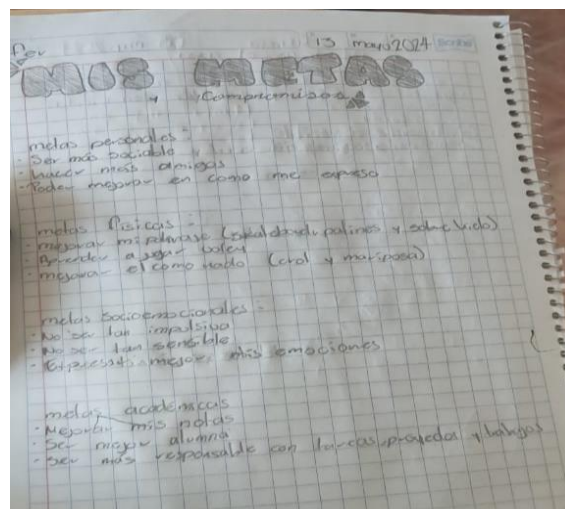 Fer
13 mayo 2024
MIS METAS
y compromisos
metas personales:
- Ser más sociable
- hacer más amigas
- Poder mejorar en como me expreso
metas físicas:
- mejorar mi patinaje (skateboard, patines y sobre hielo)
- Aprender a jugar voley
- mejorar el como nado (crol y mariposa)
metas socioemocionales:
- No ser tan impulsiva
- No ser tan sensible
- Expresar mejor mis emociones
metas académicas
- Mejorar mis notas
- Ser mejor alumna
- Ser más responsable con tareas, proyectos y trabajos